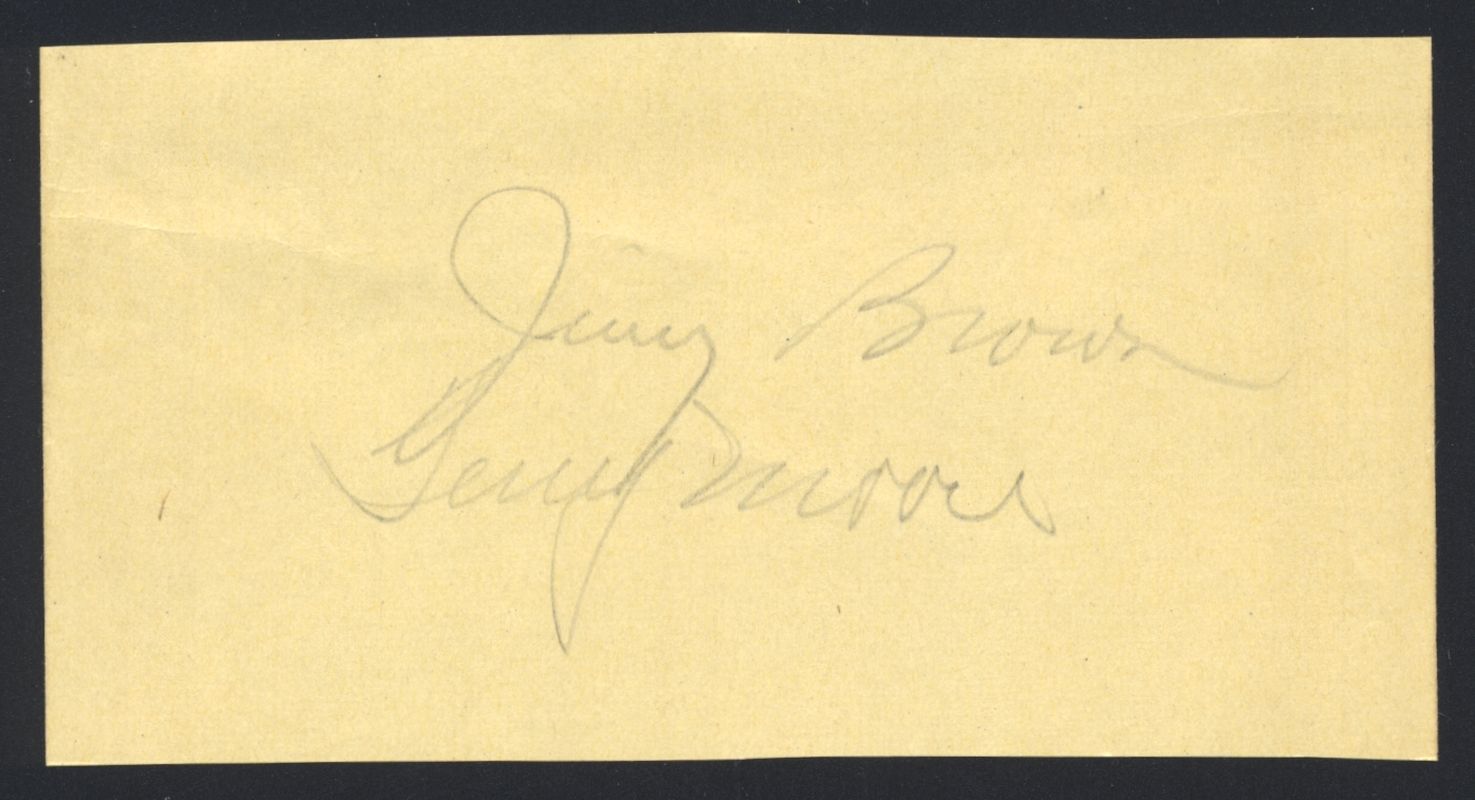 Jimmy Brown
Gerry Moore